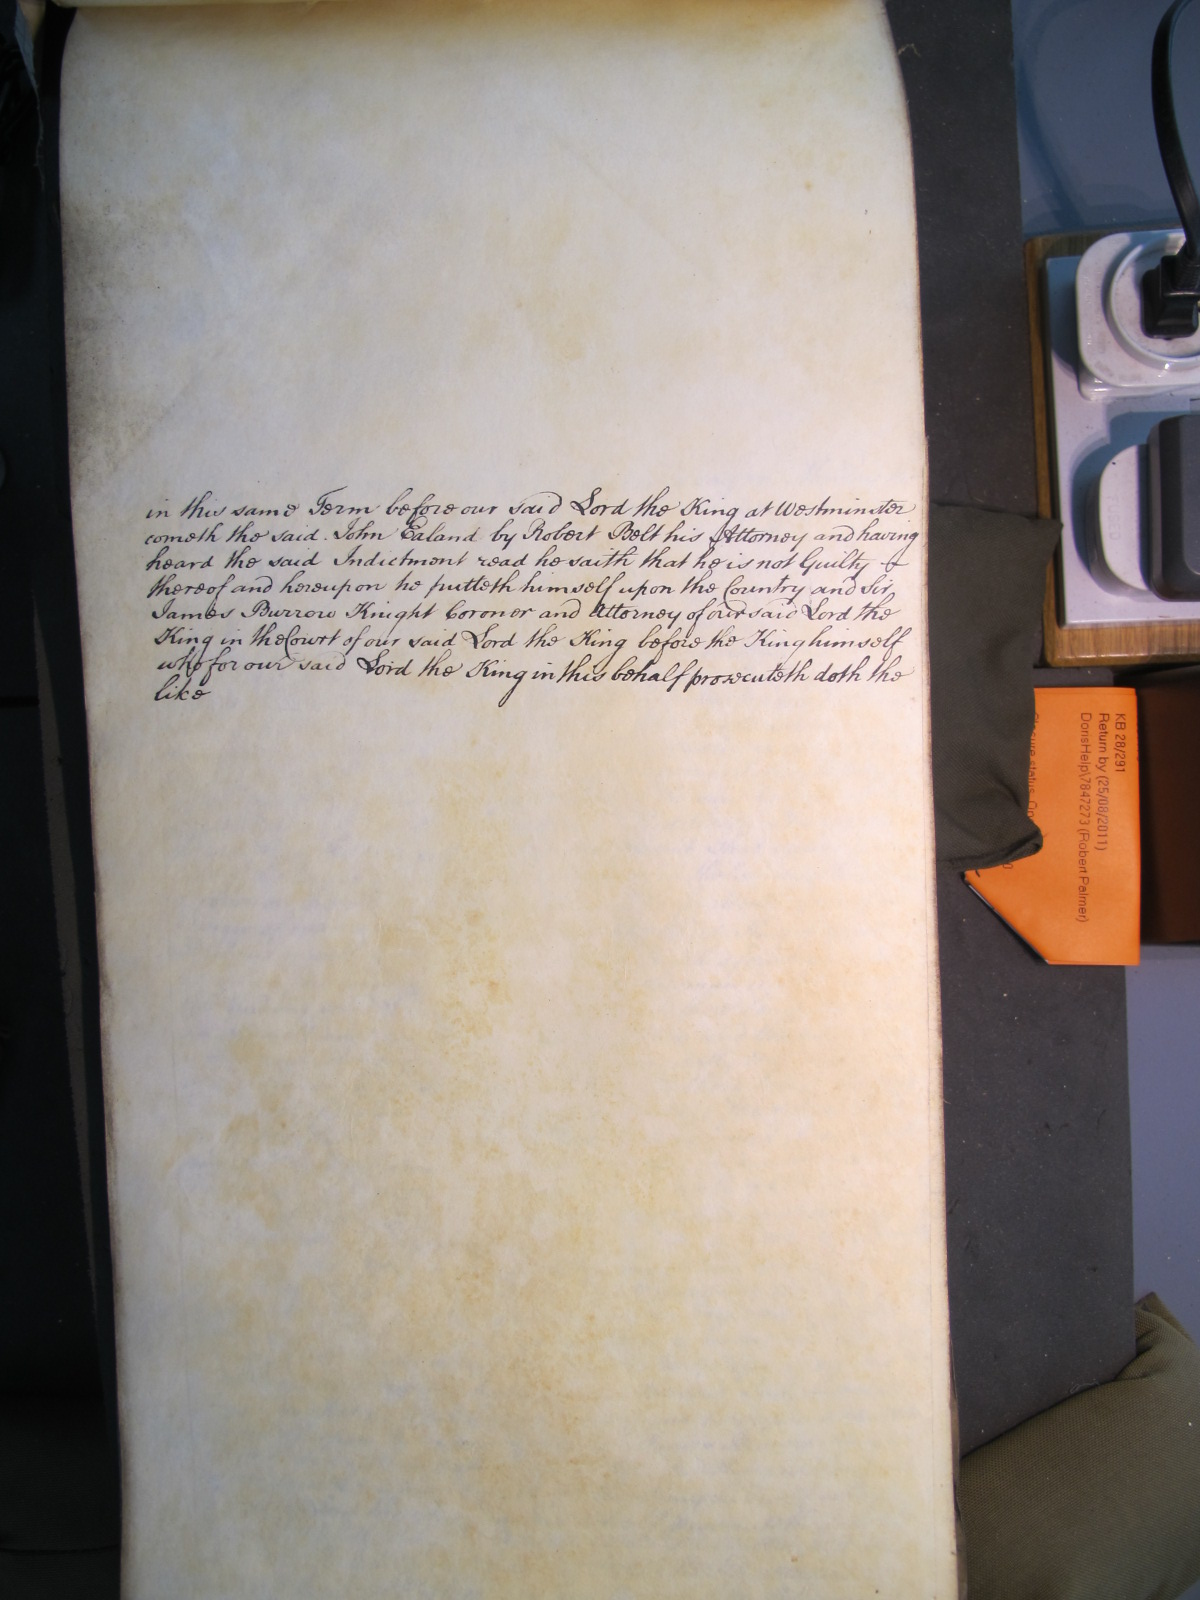 in this same Term before our said Lord the King at Westminster
cometh the said John Ealand by Robert Belt his Attorney and having
heard the said Indictment read he saith that he is not Guilty
thereof and hereupon he putteth himself upon the Country and Sir
James Burrow Knight Coroner and Attorney of our said Lord the
King in the Court of our said Lord the King before the King himself
who for our said Lord the King in this behalf prosecuteth doth the
like
KB 28/291
Return by (25/08/2011)
DorisHelp\7847273 (Robert Palmer)